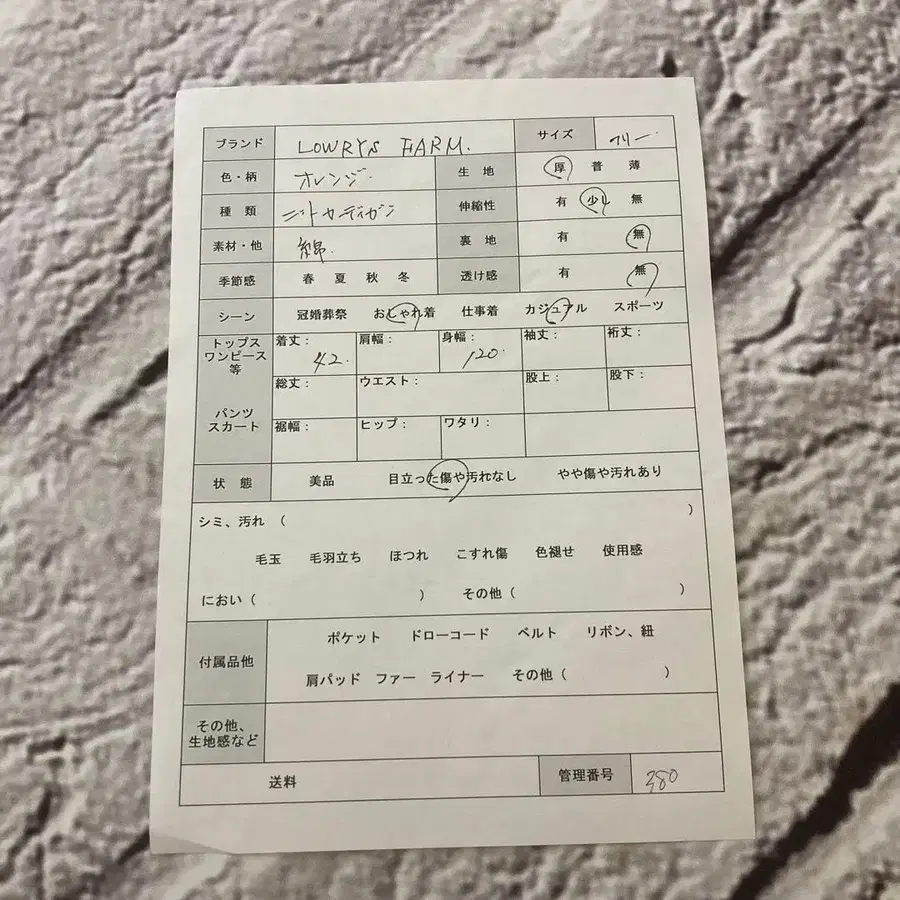 ブランド LOWRYS FARM. サイズ フリー
色・柄 オレンジ. 生 地 厚 普 薄
種 類 ニットカーディガン 伸縮性 有 少し 無
素材・他 綿. 裏 地 有 無
季節感 春 夏 秋 冬 透け感 有 無
シーン 冠婚葬祭 おしゃれ着 仕事着 カジュアル スポーツ
トップス ワンピース 等 着丈: 42. 肩幅: 身幅: 120. 袖丈: 裄丈:
パンツ スカート 総丈: ウエスト: 股上: 股下:
裾幅: ヒップ: ワタリ:
状 態 美品 目立った傷や汚れなし やや傷や汚れあり
シミ、汚れ ( )
毛玉 毛羽立ち ほつれ こすれ傷 色褪せ 使用感
におい ( ) その他 ( )
付属品他 ポケット ドローコード ベルト リボン、紐
肩パッド ファー ライナー その他 ( )
その他、
生地感など
送料 管理番号 380